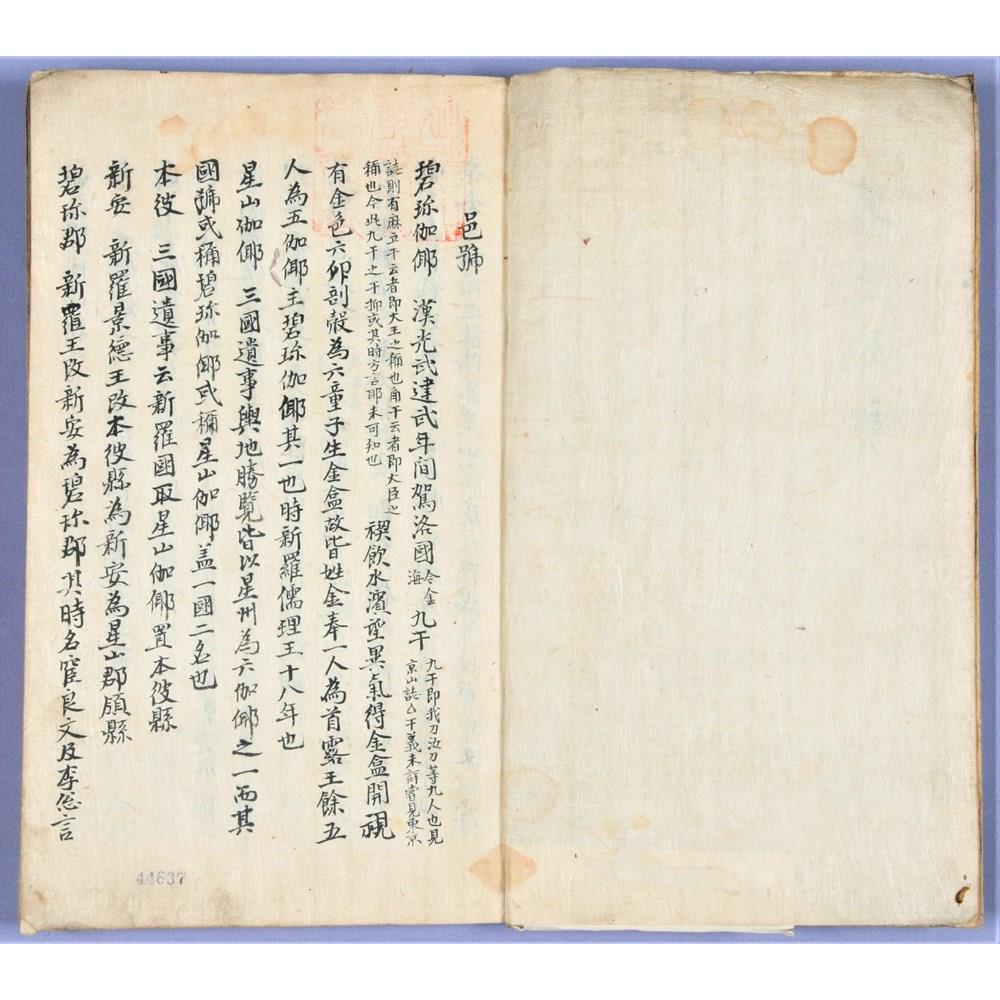 邑號
碧珎伽倻 漢光武建武年间駕洛國今金海九干九干即我刀汝刀等九人也見京山誌△干義未詳嘗見東京
誌則有麻立干云者即大王之稱也角干云者即大臣之稱也今此九干之干抑或其時方言耶未可知也禊飲水濱望異氣得金盒開視
有金色六卵剖殼為六童子生金盒故皆姓金奉一人為首露王餘五
人為五伽倻主碧珎伽倻其一也時新羅儒理王十八年也
星山伽倻 三國遺事輿地勝覽皆以星州為六伽倻之一而其
國號或稱碧珎伽倻或稱星山伽倻盖一國二名也
本彼 三國遺事云新羅國取星山伽倻置本彼縣
新安 新羅景德王改本彼縣為新安為星山郡領縣
碧珎郡 新羅王改新安為碧珎郡其時名宦良文及李忩言
44637